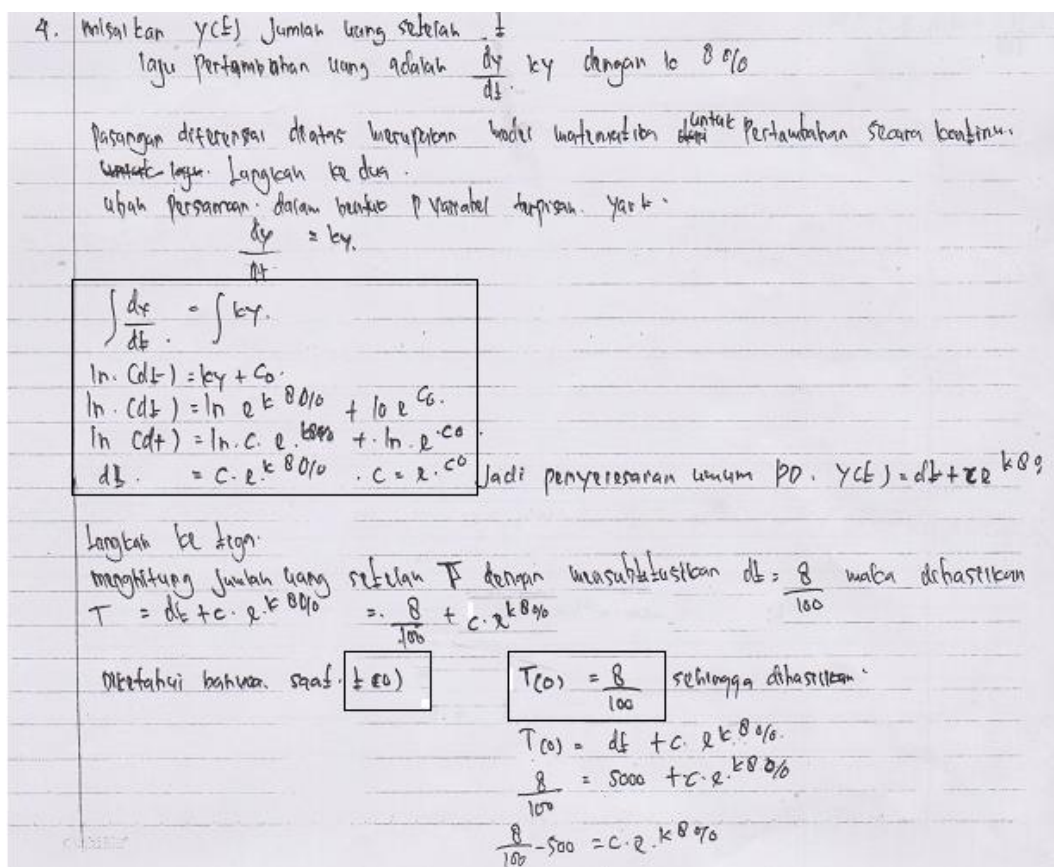 4. Misalkan Y(t) Jumlah uang setelah t
laju Pertambahan uang adalah dy/dt ky dengan k 8%
Pasangan diferensial diatas merupakan model matematika untuk Pertambahan secara kontinu.
Langkah ke dua.
Ubah Persamaan. dalam bentuk P Variabel terpisah. Yaitu.
dy/dt = ky.
∫ dy/dt. = ∫ ky.
ln. (dt) = ky + C0.
ln. (dt) = ln e^k 8% + lo e^C0.
ln (dt) = ln. C. e.^k8% + ln. e.^C0
dt. = C. e.^k 8% . C = e.^C0 Jadi penyelesaian umum PD. Y(t) = dt + ce^k8%
Langkah ke tiga.
menghitung Jumlah uang setelah T dengan mensubtitusikan dt = 8/100 maka dihasilkan
T = dt + c. e.^k 8% =. 8/100 + c. e^k8%
Diketahui bahwa. saat. t (0) T(0) = 8/100 sehingga dihasilkan.
T(0) = dt + c. e^k.8%.
8/100 = 5000 + c. e.^k8%
8/100 - 500 = c. e.^k8%